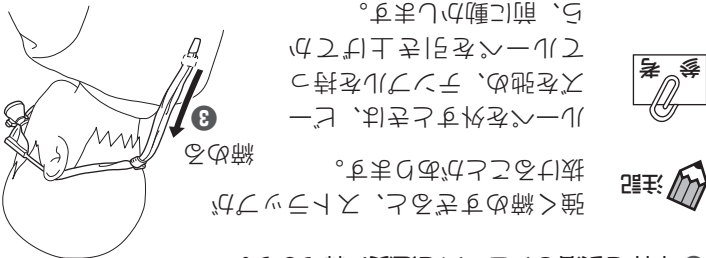 注記
強く締めすぎると、ストラップが
抜けることがあります。
参考
ルーペを外すときは、ビー
ズを弛め、テンプルを持っ
てルーペを引き上げてか
ら、前に動かします。
締める
❸